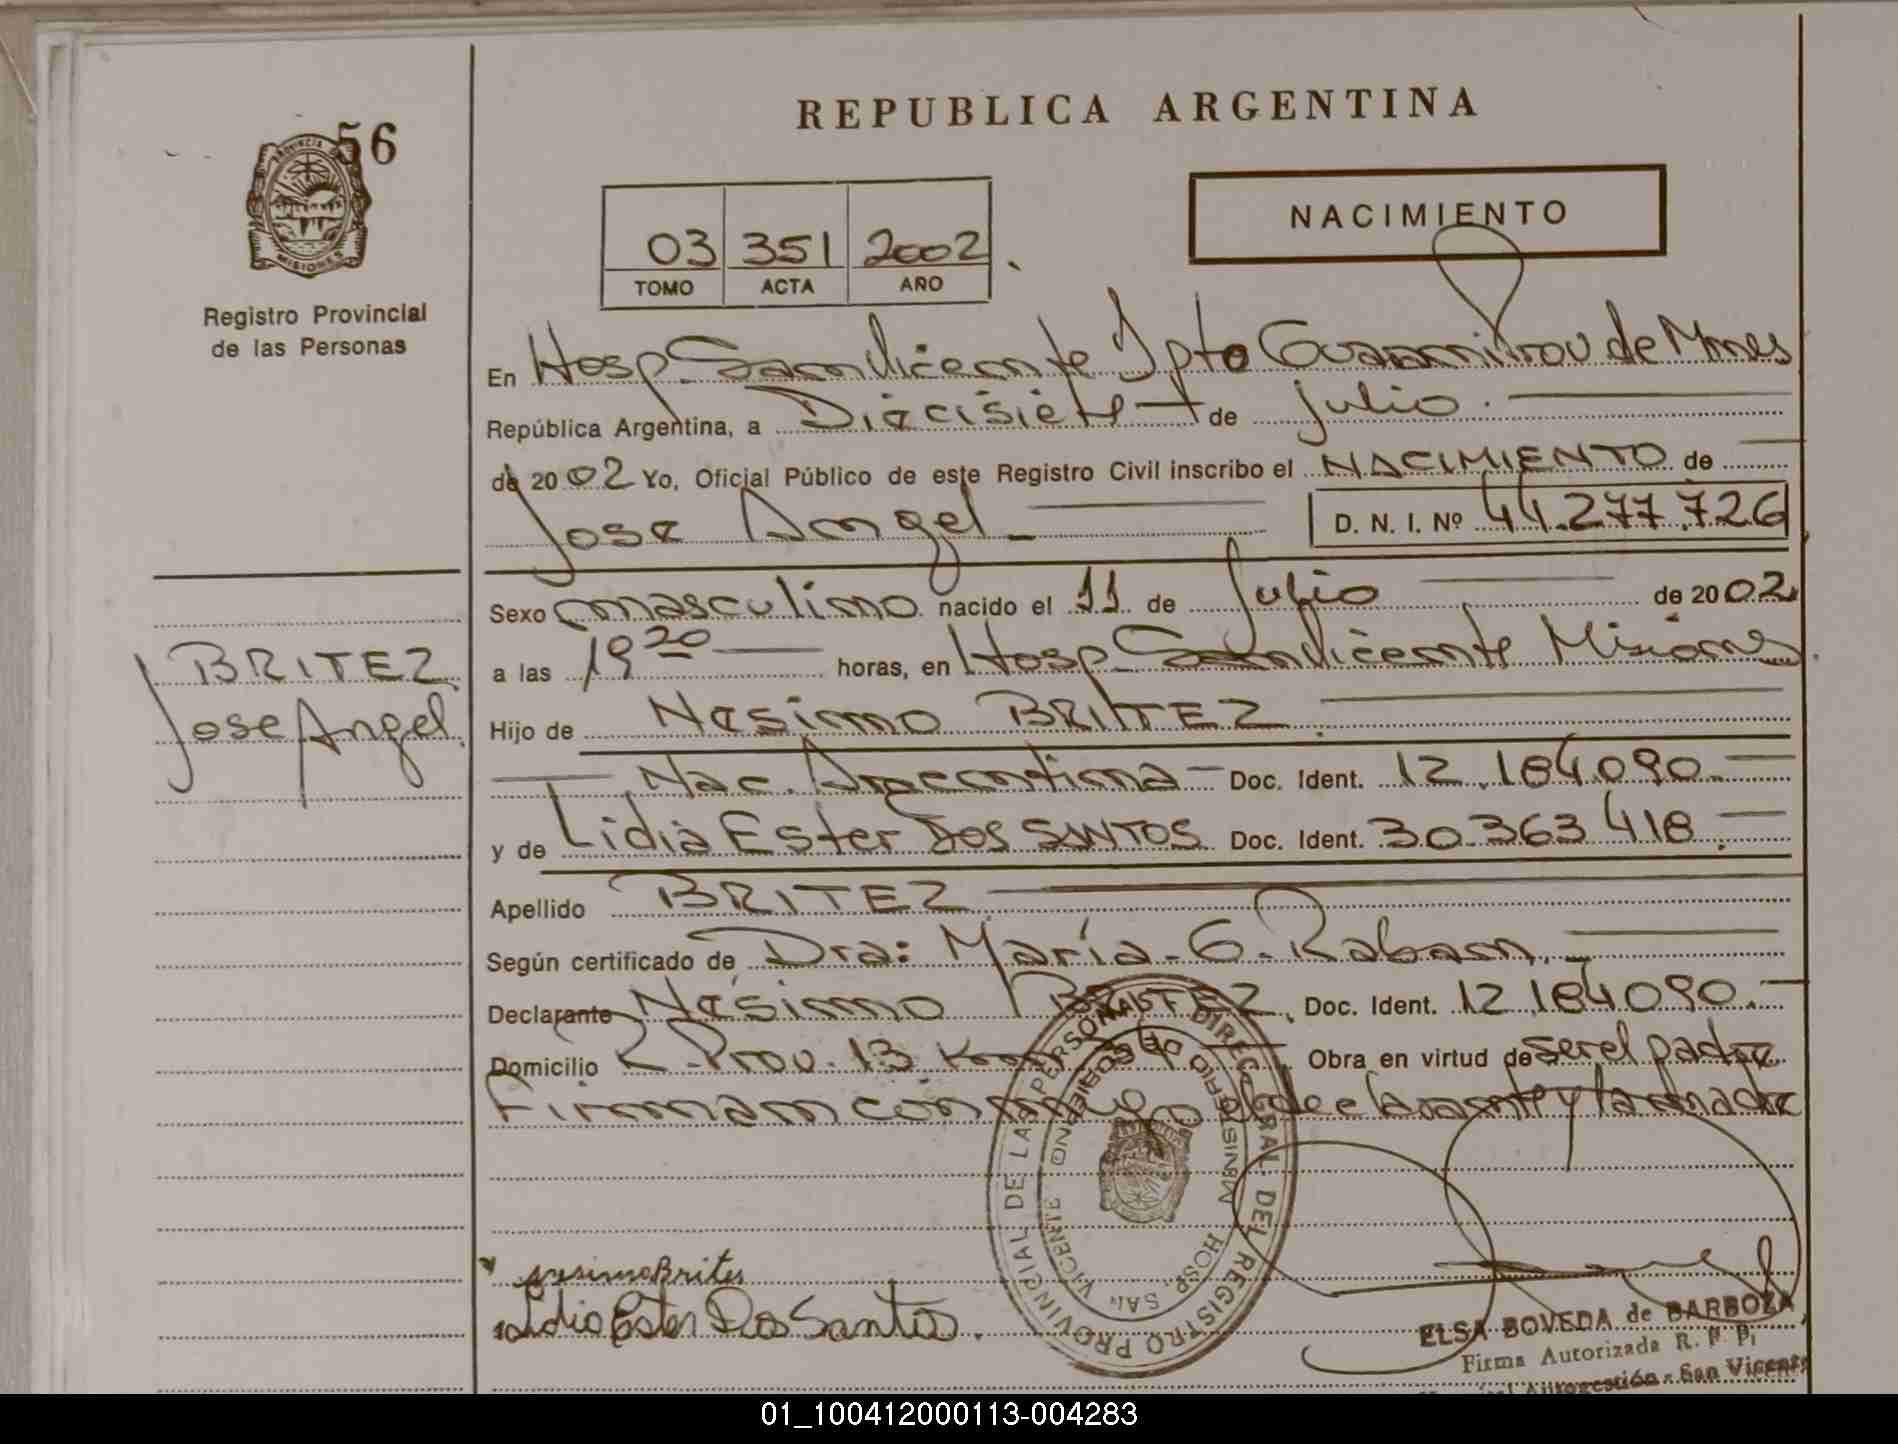 56
PROVINCIA DE
MISIONES
Registro Provincial
de las Personas
REPUBLICA ARGENTINA
NACIMIENTO
03 351 2002
TOMO ACTA AÑO
En Hosp San Vicente Dpto Guarani Prov de Mnes
República Argentina, a Diecisiete de julio.
de 2002 Yo, Oficial Público de este Registro Civil inscribo el NACIMIENTO de
Jose Angel D. N. I. Nº 44.277.726
Sexo masculino nacido el 11 de Julio de 2002
a las 19 20 horas, en Hosp San Vicente Misiones
BRITEZ
Jose Angel.
Hijo de Nesimo BRITEZ
Nac. Argentina - Doc. Ident. 12.184.090.
y de Lidia Ester DOS SANTOS Doc. Ident. 30.363.418
Apellido BRITEZ
Según certificado de Dra: María - G. Raban.
Declarante Nesimo BRITEZ. Doc. Ident. 12.184.090.
Domicilio R. Prov. 13 Km Obra en virtud de ser el padre
Firman conmigo el declarante y la madre
REGISTRO PROVINCIAL DE LAS PERSONAS DIREC. GRAL. DEL
MINISTERIO DE GOBIERNO
HOSP. SAN VICENTE
nesimo Brites
Lidia Ester Dos Santos.
ELSA BOVEDA de BARBOZA
Firma Autorizada R. P. P.
Autogestión - San Vicente
01_100412000113-004283